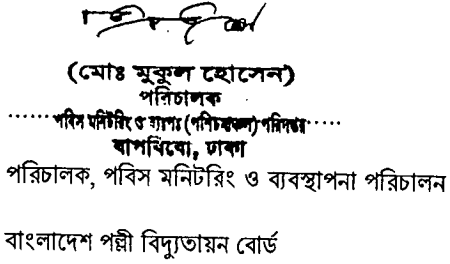 (মোঃ মুকুল হোসেন)
পরিচালক
পবিস মনিটরিং ও ব্যবঃ (পশ্চিমাঞ্চল) পরিদপ্তর
বাপবিবো, ঢাকা
পরিচালক, পবিস মনিটরিং ও ব্যবস্থাপনা পরিচালন
বাংলাদেশ পল্লী বিদ্যুতায়ন বোর্ড